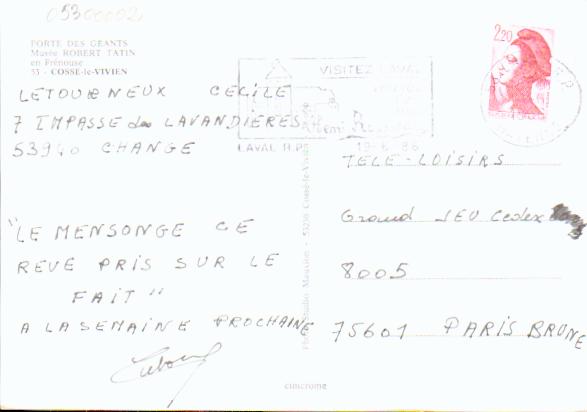 05300002
PORTE DES GEANTS
Musée ROBERT TATIN
en Frénouse
53 - COSSE-le-VIVIEN
LETOURNEUX CECILE
7 IMPASSE des LAVANDIERES
53940 CHANGE
"LE MENSONGE CE
REVE PRIS SUR LE
FAIT"
A LA SEMAINE PROCHAINE
2,20
VISITEZ LAVAL
Henri
LAVAL R.P.
19-6 86
TELE-LOISIRS
Grand JEU Cedex
8005
75601 PARIS BRUNE
Studio Mauxion - 53230 Cossé-le-Vivien
cimcrome